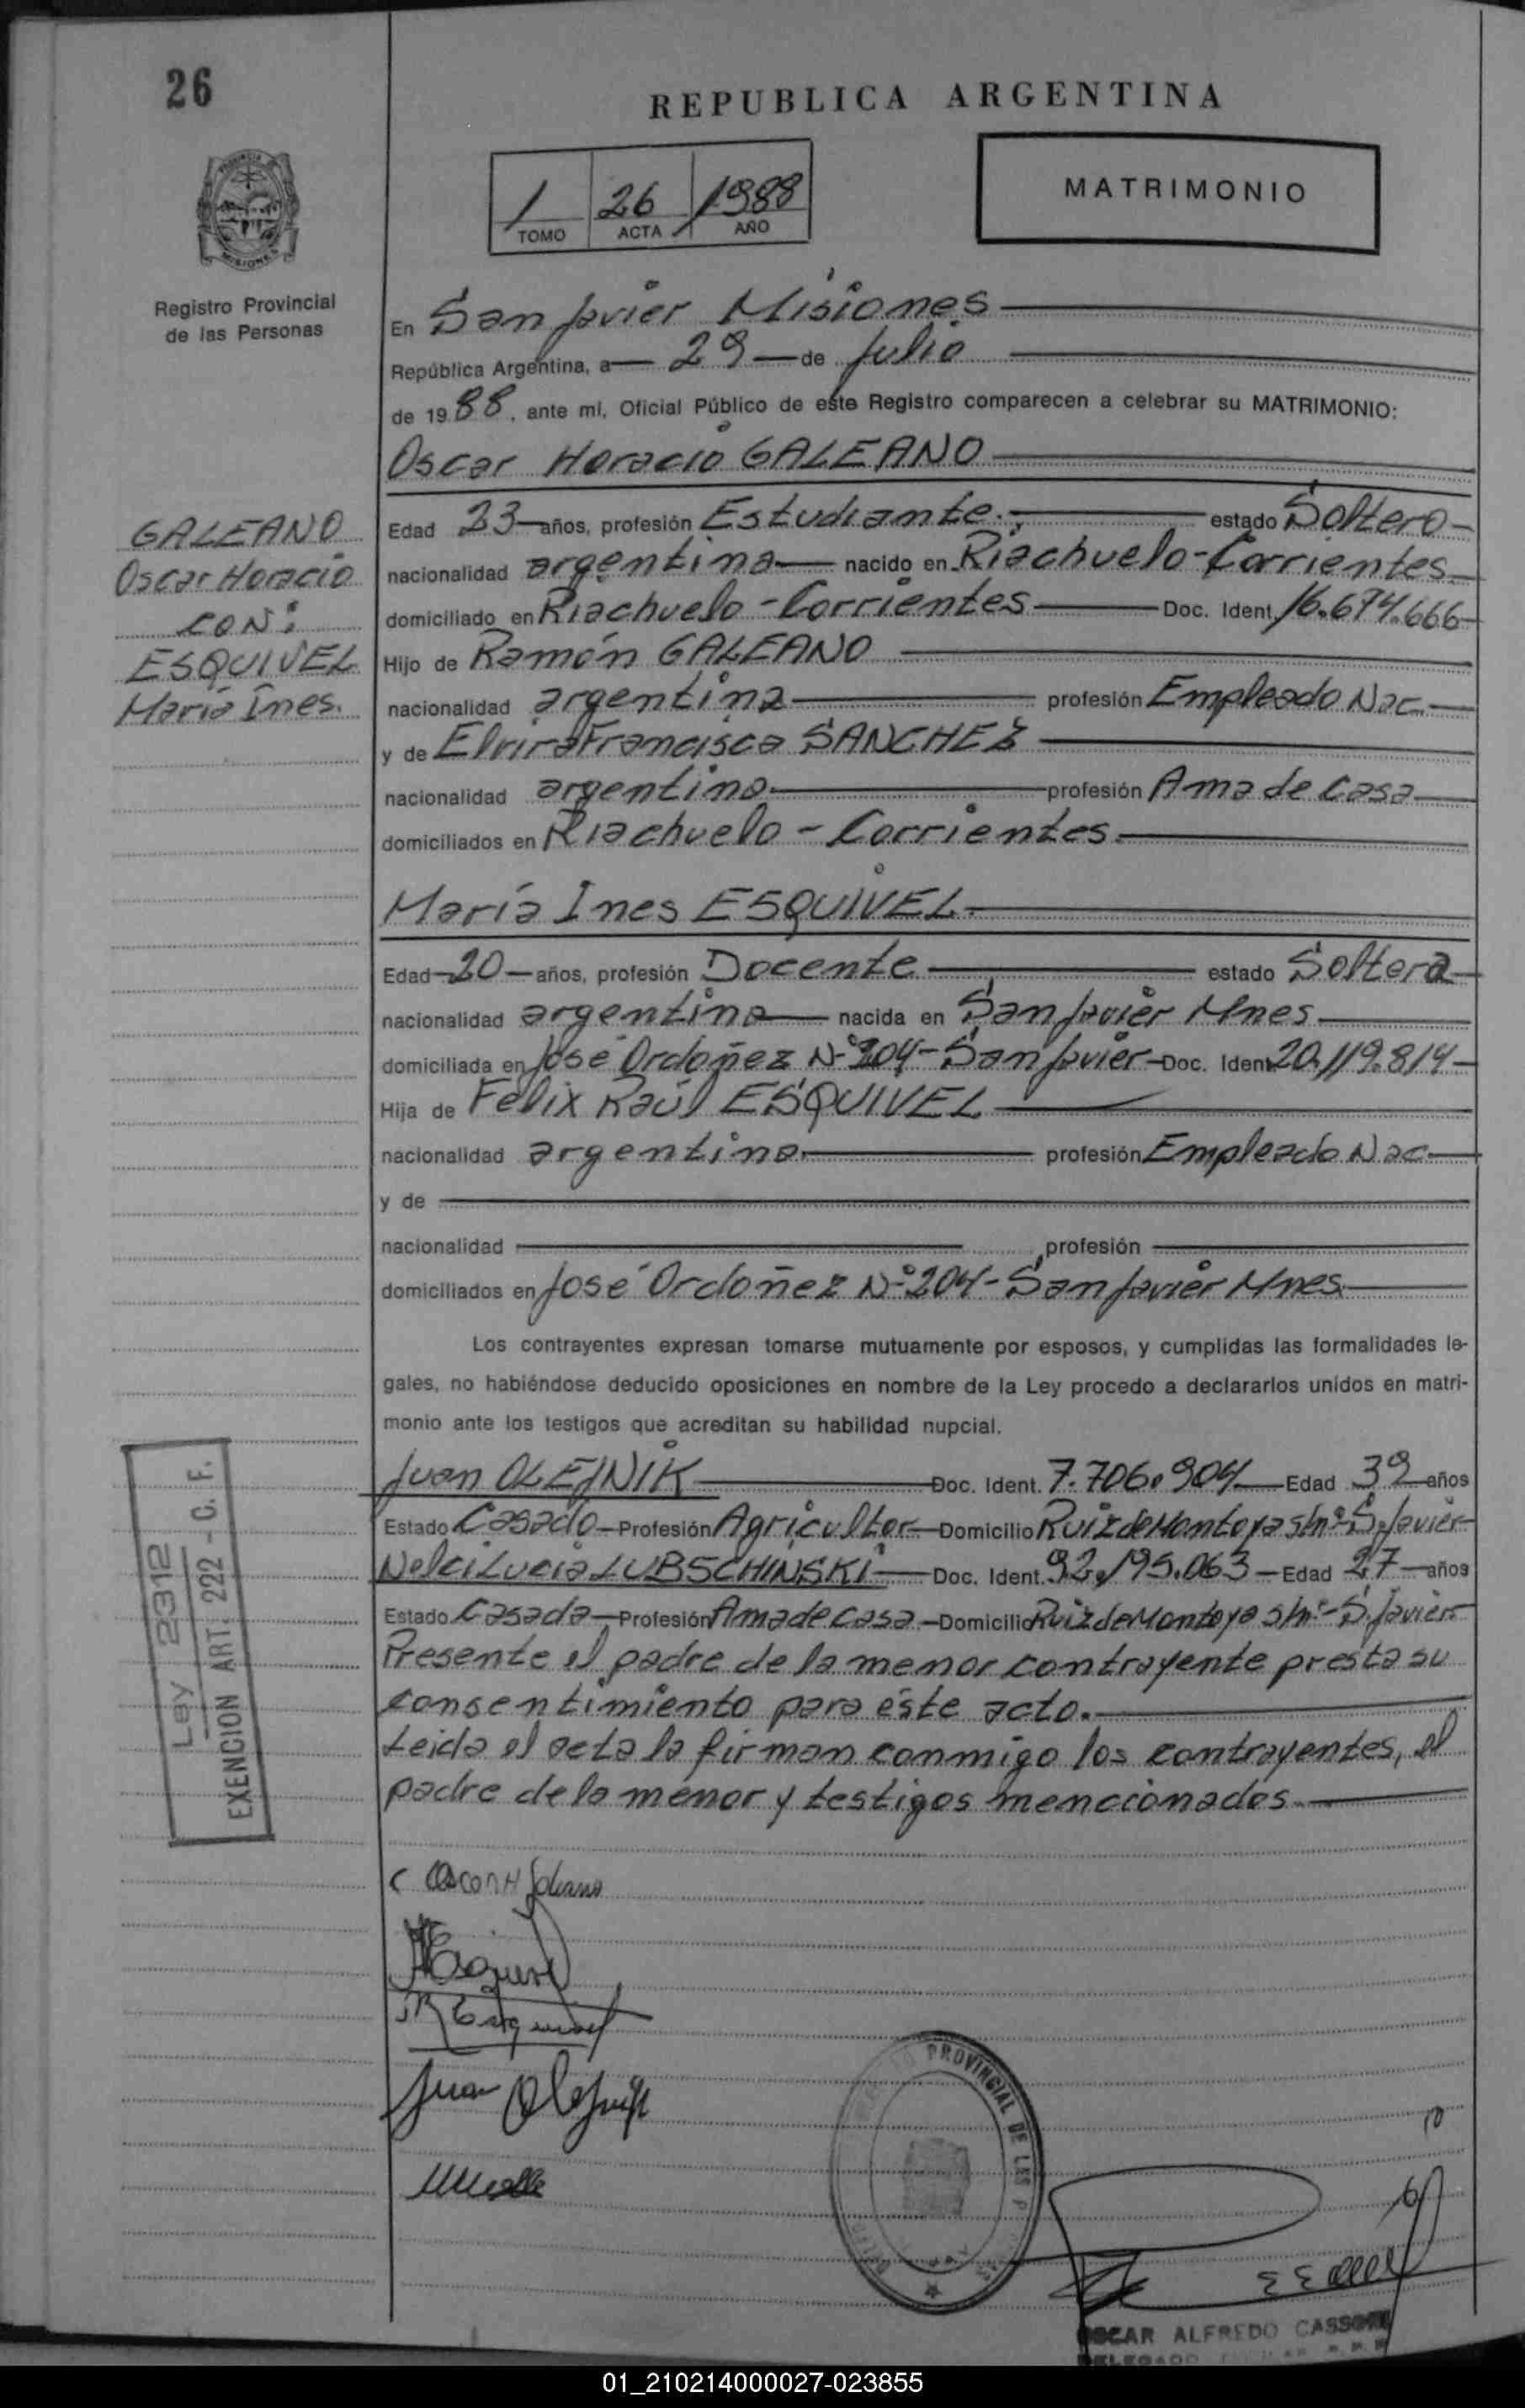 26
REPUBLICA ARGENTINA
1 26 1988
TOMO ACTA AÑO
MATRIMONIO
PROVINCIA DE
MISIONES
Registro Provincial
de las Personas
En San Javier Misiones
República Argentina, a 29 de Julio
de 1988, ante mí, Oficial Público de este Registro comparecen a celebrar su MATRIMONIO:
Oscar Horacio GALEANO
GALEANO
Oscar Horacio
CON:
ESQUIVEL
María Ines.
Edad 23 años, profesión Estudiante. estado Soltero
nacionalidad argentina nacido en Riachuelo-Corrientes
domiciliado en Riachuelo-Corrientes Doc. Ident. 16.674.666
Hijo de Ramón GALEANO
nacionalidad argentina profesión Empleado Nac.
y de Elvira Francisca SANCHEZ
nacionalidad argentina profesión Ama de Casa
domiciliados en Riachuelo - Corrientes.
María Ines ESQUIVEL.
Edad 20 años, profesión Docente estado Soltera
nacionalidad argentina nacida en San Javier Mnes.
domiciliada en José Ordoñez Nº 204-San Javier Doc. Ident. 20.119.814
Hija de Felix Raúl ESQUIVEL
nacionalidad argentina. profesión Empleado Nac.
y de
nacionalidad profesión
domiciliados en José Ordoñez Nº 204-San Javier Mnes.
Los contrayentes expresan tomarse mutuamente por esposos, y cumplidas las formalidades le-
gales, no habiéndose deducido oposiciones en nombre de la Ley procedo a declararlos unidos en matri-
monio ante los testigos que acreditan su habilidad nupcial.
Juan OLEJNIK Doc. Ident. 7.706.904 Edad 39 años
Estado Casado Profesión Agricultor Domicilio Ruiz de Montoya s/nº-S.Javier
Nelci Lucia LUBSCHINSKI Doc. Ident. 92.195.063 Edad 27 años
Estado Casada Profesión Ama de casa Domicilio Ruiz de Montoya s/nº-S.Javier
Presente el padre de la menor contrayente presta su
consentimiento para éste acto.
Leida el acta la firman conmigo los contrayentes, el
padre de la menor y testigos mencionados.
Ley 2312
EXENCION ART. 222 - C. F.
Oscar H Galeano
Esquivel
R Esquivel
Juan Olejnik
PROVINCIAL DE LAS
OSCAR ALFREDO
DELEGADO
01_210214000027-023855